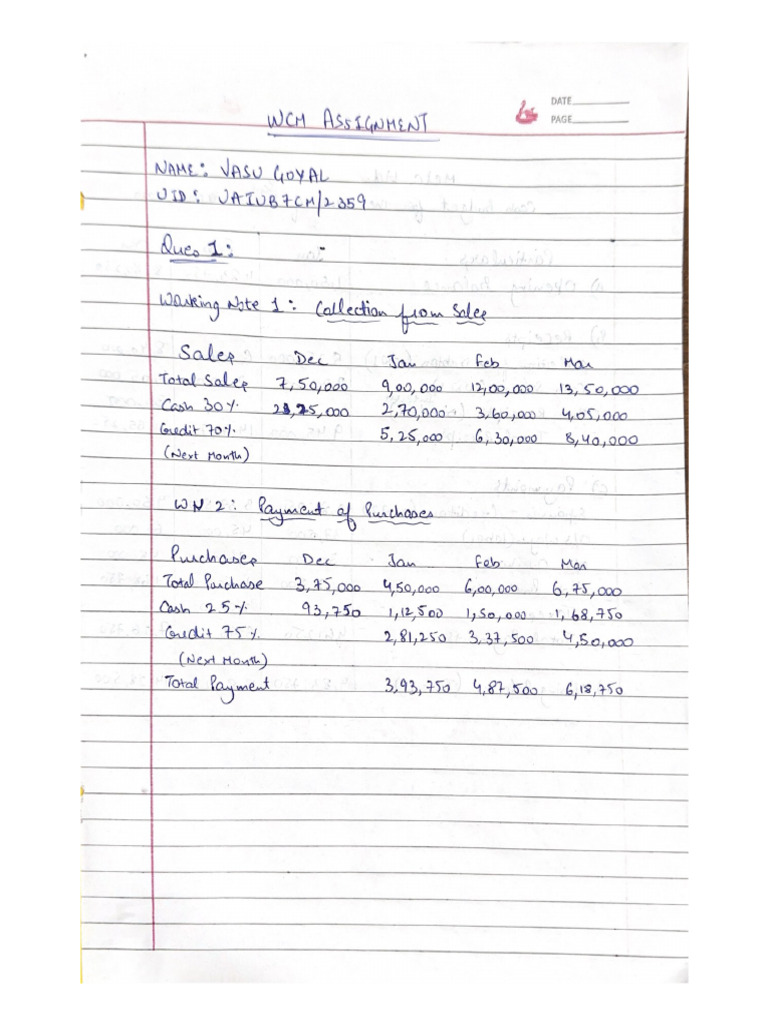 DATE
PAGE
WCM ASSIGNMENT
NAME: VASU GOYAL
UID: UAIUB7CM/2359
Ques 1:
Working Note 1: Collection from Sales
Sales Dec Jan Feb Mar
Total Sales 7,50,000 9,00,000 12,00,000 13,50,000
Cash 30% 2,25,000 2,70,000 3,60,000 4,05,000
Credit 70% 5,25,000 6,30,000 8,40,000
(Next Month)
WN 2: Payment of Purchases
Purchases Dec Jan Feb Mar
Total Purchase 3,75,000 4,50,000 6,00,000 6,75,000
Cash 25% 93,750 1,12,500 1,50,000 1,68,750
Credit 75% 2,81,250 3,37,500 4,50,000
(Next Month)
Total Payment 3,93,750 4,87,500 6,18,750